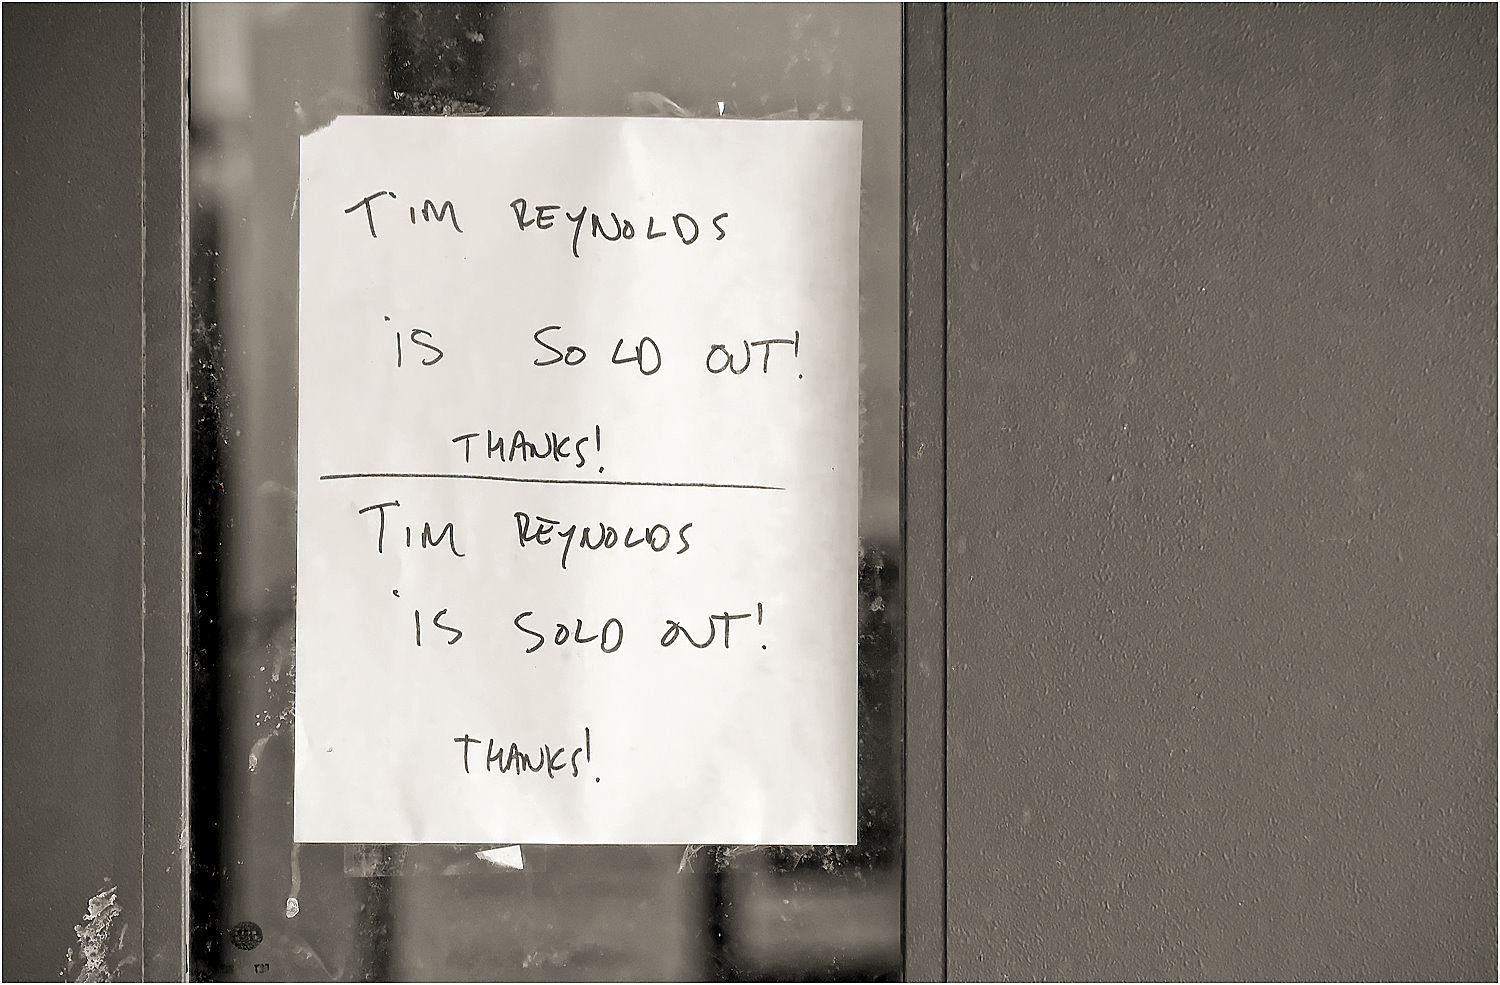 TIM REYNOLDS
IS SOLD OUT!
THANKS!
TIM REYNOLDS
IS SOLD OUT!
THANKS!